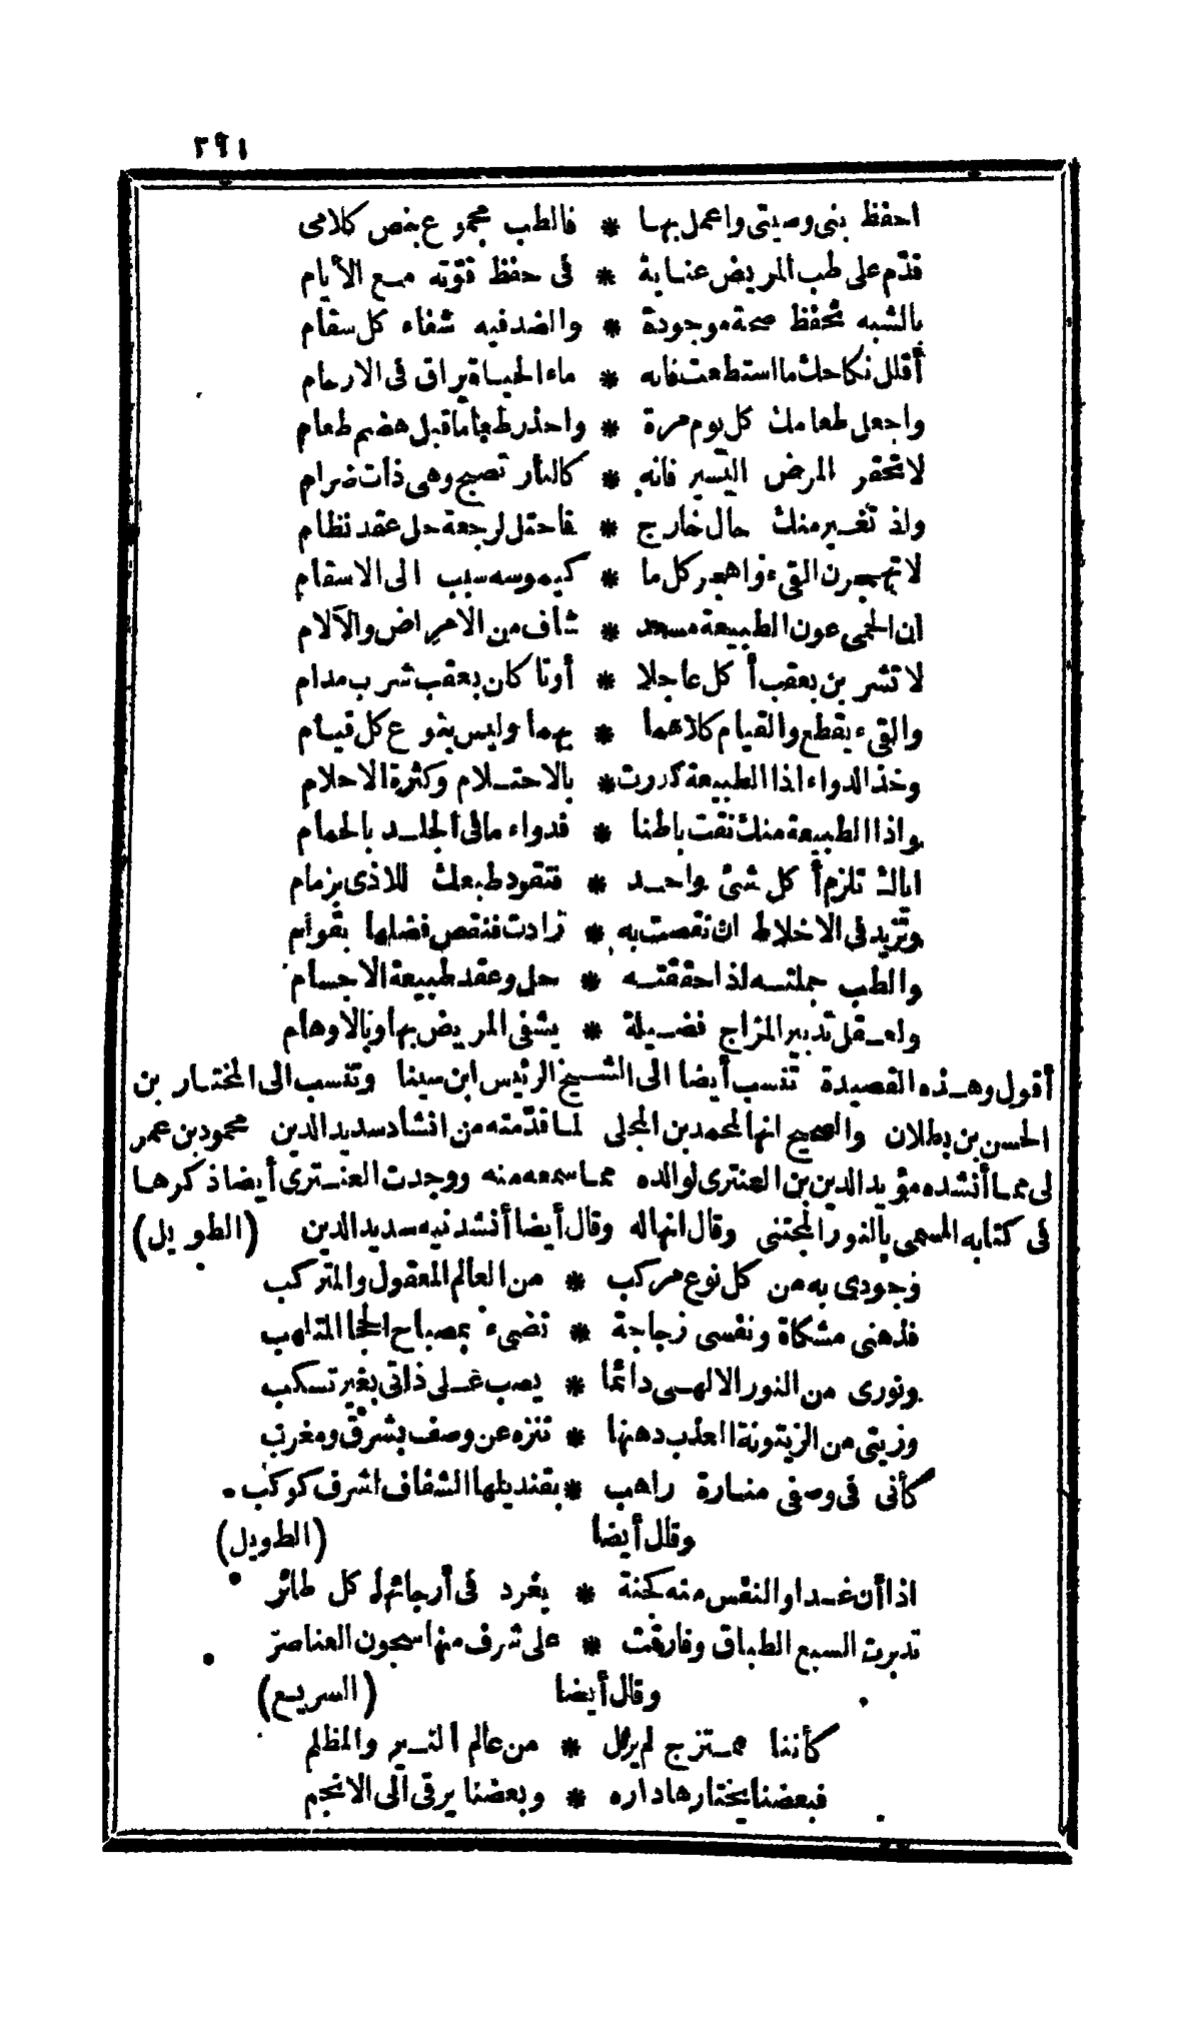 ٢٩١
احفظ بنى وصيتى واعمل بها * فالطب مجموع بنص كلامى
قدّم على طب المريض عناية * فى حفظ قوّته مع الأيام
بالشبه تحفظ صحة موجودة * والضد فيه شفاء كل سقام
أقلل نكاحك ما استطعت فانه * ماء الحياة يراق فى الارحام
واجعل طعامك كل يوم مرة * واحذر طعاما قبل هضم طعام
لا تحقر المرض اليسير فانه * كالنار تصبح وهى ذات ضرام
واذ تغير منك حال خارج * فاحتل لرجعة حل عقد نظام
لا تهجرن القىء واهجر كل ما * كيموسه سبب الى الاسقام
ان الحمى عون الطبيعة مسعد * شاف من الامراض والآلام
لا تشربن بعقب أكل عاجلا * أو تا كان بعقب شرب مدام
والقىء يقطع والقيام كلاهما * بهما وليس بنوع كل قيام
وخذ الدواء اذا الطبيعة كررت * بالاحتلام وكثرة الاحلام
واذا الطبيعة منك نقت باطنا * فدواء ما فى الجلد بالحمام
اياك تلزم أكل شئ واحد * فتقود طبعك للاذى بزمام
وتزيد فى الاخلاط ان نقصت به * زادت فنقص فضلها بقوام
والطب جملته اذا حققته * حل وعقد طبيعة الاجسام
ولعقل تدبير المزاج فضيلة * يشفى المريض بها وبالاوهام
أقول وهذه القصيدة تنسب أيضا الى الشيخ الرئيس ابن سينا وتنسب الى المختار بن
الحسن بن بطلان والصحيح انها لمحمد بن المجلى لما قدّمته من انشاد سديد الدين محمود بن عمر
لى مما أنشده مؤيد الدين بن العنترى لوالده مما سمعه منه ووجدت العنترى أيضا ذكرها
فى كتابه المسمى بالنور المجتنى وقال انها له وقال أيضا أنشدنيه سديد الدين (الطويل)
وجودى به من كل نوع مركب * من العالم المعقول والمتركب
فذهنى مشكاة ونفسى زجاجة * تضىء بمصباح الحجا المتلهب
ونورى من النور الالهى دائما * يصب على ذاتى بغير تسكب
وزيتى من الزيتونة العذب دهنها * تنزه عن وصف بشرق ومغرب
كأنى فى وصفى منارة راهب * بقنديلها الشفاف اشرف كوكب
وقال أيضا (الطويل)
اذا أن غدا والنفس منه كجنة * يغرد فى أرجائها كل طائر
تدبرت السبع الطباق وفارقت * على شرف منها سجون العناصر
وقال أيضا (السريع)
كأننا ممتزج لم يزل * من عالم النير والمظلم
فبعضنا يختارها داره * وبعضنا يرقى الى الانجم